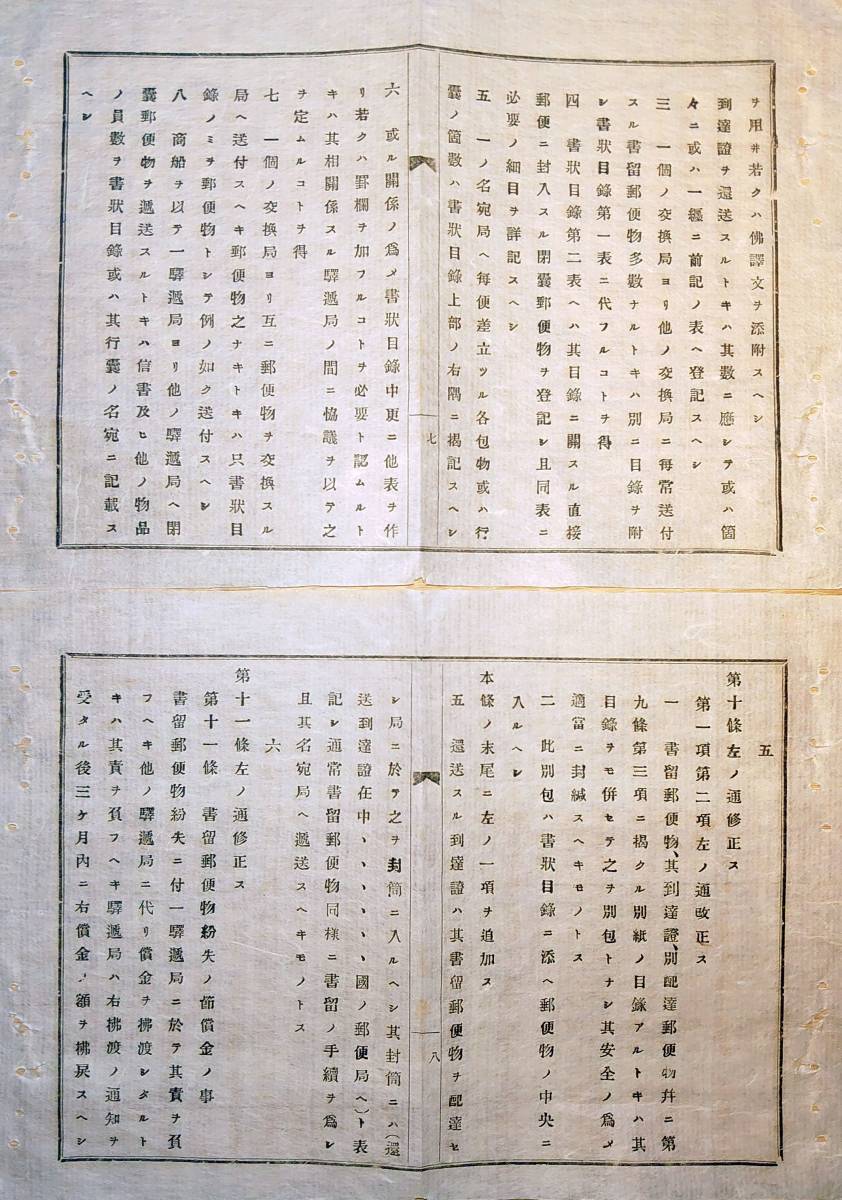 ヲ用井若クハ佛譯文ヲ添附スヘシ
到達證ヲ還送スルトキハ其數ニ應シテ或ハ箇
々ニ或ハ一纏ニ前記ノ表ヘ登記スヘシ
三 一個ノ交換局ヨリ他ノ交換局ニ每常送付
スル書留郵便物多數ナルトキハ別ニ目錄ヲ附
シ書狀目錄第一表ニ代フルコトヲ得
四 書狀目錄第二表ヘハ其目錄ニ關スル直接
郵便ニ封入スル閉囊郵便物ヲ登記シ且同表ニ
必要ノ細目ヲ詳記スヘシ
五 一ノ名宛局ヘ每便差立ツル各包物或ハ行
囊ノ箇數ハ書狀目錄上部ノ右隅ニ揭記スヘシ
七
六 或ル關係ノ爲メ書狀目錄中更ニ他表ヲ作
リ若クハ罫欄ヲ加フルコトヲ必要ト認ムルト
キハ其相關係スル驛遞局ノ間ニ恊議ヲ以テ之
ヲ定ムルコトヲ得
七 一個ノ交換局ヨリ互ニ郵便物ヲ交換スル
局ヘ送付スヘキ郵便物之ナキトキハ只書狀目
錄ノミヲ郵便物トシテ例ノ如ク送付スヘシ
八 商船ヲ以テ一驛遞局ヨリ他ノ驛遞局ヘ閉
囊郵便物ヲ遞送スルトキハ信書及ヒ他ノ物品
ノ員數ヲ書狀目錄或ハ其行囊ノ名宛ニ記載ス
ヘシ
五
第十條左ノ通修正ス
第一項第二項左ノ通改正ス
一 書留郵便物、其到達證、別配達郵便物幷ニ第
九條第三項ニ揭クル別紙ノ目錄アルトキハ其
目錄ヲモ併セテ之ヲ別包トナシ其安全ノ爲メ
適當ニ封緘スヘキモノトス
二 此別包ハ書狀目錄ニ添ヘ郵便物ノ中央ニ
入ルヘシ
本條ノ末尾ニ左ノ一項ヲ追加ス
五 還送スル到達證ハ其書留郵便物ヲ配達セ
八
シ局ニ於テ之ヲ封筒ニ入ルヘシ其封筒ニハ(還
送到達證在中、、、、、、國ノ郵便局ヘ)ト表
記シ通常書留郵便物同樣ニ書留ノ手續ヲ爲シ
且其名宛局ヘ遞送スヘキモノトス
六
第十一條左ノ通修正ス
第十一條 書留郵便物紛失ノ節償金ノ事
書留郵便物紛失ニ付一驛遞局ニ於テ其責ヲ負
フヘキ他ノ驛遞局ニ代リ償金ヲ拂渡シタルト
キハ其責ヲ負フヘキ驛遞局ハ右拂渡ノ通知ヲ
受タル後三ケ月內ニ右償金ノ額ヲ拂戾スヘシ